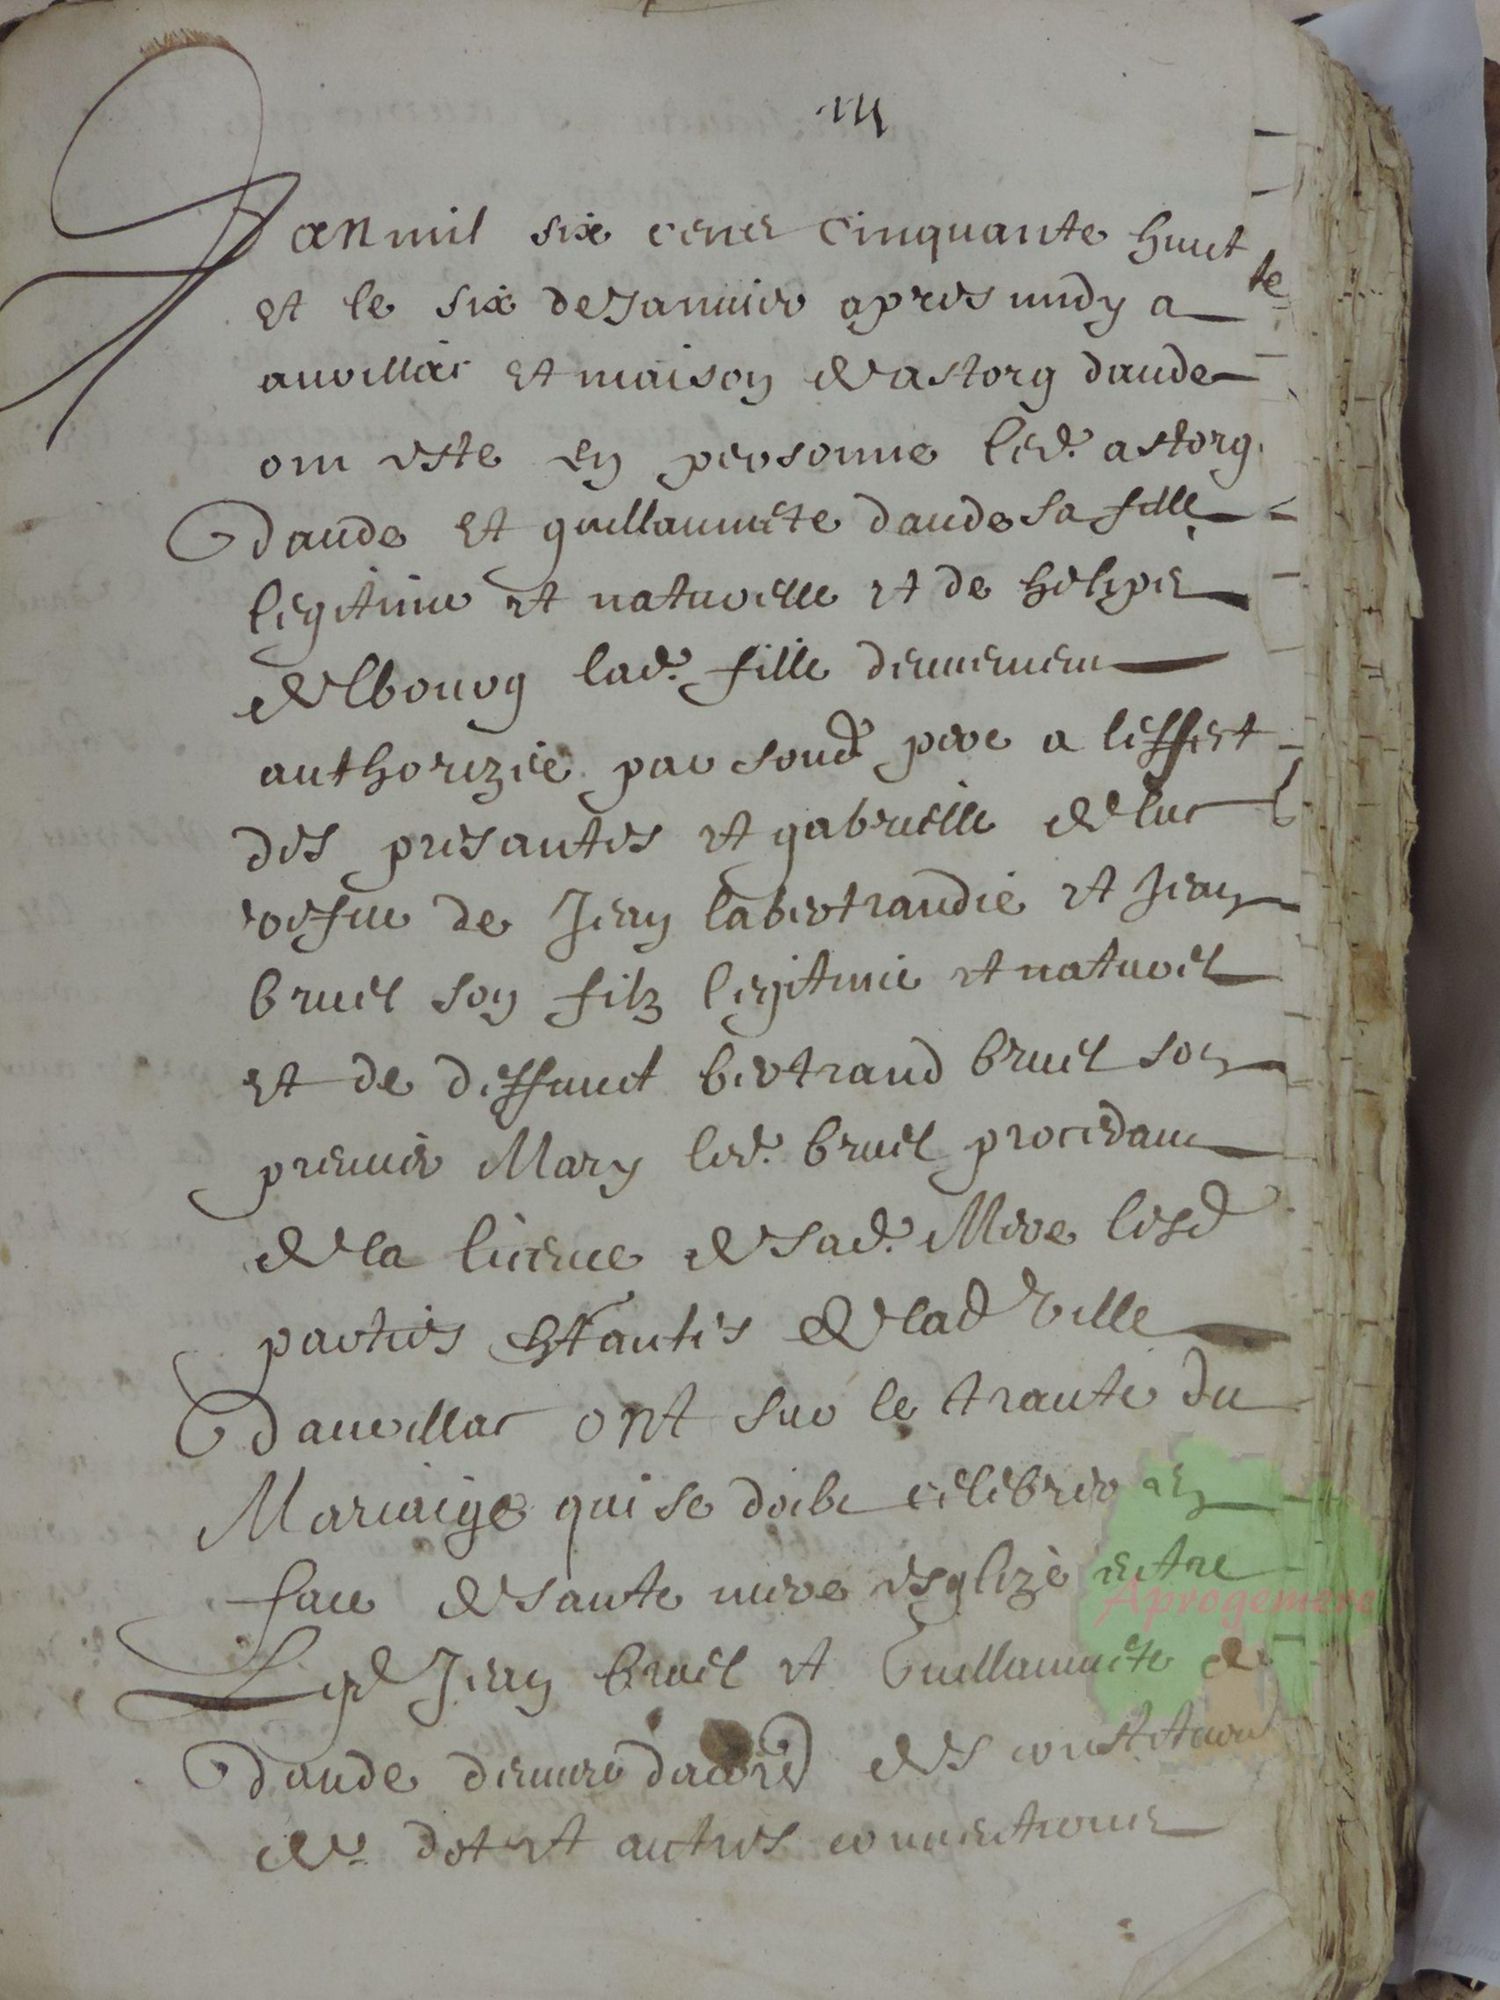 iii
Lan mil six cens cinquante huict
et le six de Januier apres midy a
auvillar et maison de astorg daude
ont este en personne led. astorg
daude et guillaumete daude sa fille
legitime et naturelle et de helips
delbourg lad. fille deuement
authorizée par sond pere a leffect
des presantes et gabrielle deluc
vefue de Jean labertrandie et Jean
bruel son filz legitime et naturel
et de deffunct bertrand bruel son
premier Mary led. bruel procedant
de la licence de sad. Mere lesd
parties habitantes de lad ville
dauvillar ont sur le traicte du
Mariaige qui se doibt celebrer en
face de saincte mere esglize entre
Lesd Jean bruel et Guillaumete de
daude demeure dacord des constitutions
de dot et autres conventions
Aprogemere